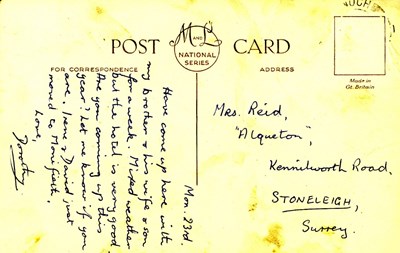 POST CARD
M AND L
NATIONAL
SERIES
FOR CORRESPONDENCE
ADDRESS
Made in
Gt. Britain
Mon. 23rd.
Have come up here with
my brother & his wife & son
for a week. Mixed weather
but the hotel is very good
Are you coming up this
year? Let me know if you
are. & David just
moved to
Love,
Dorothy
Mrs. Reid,
"Alqueton",
Kennilworth Road.
STONELEIGH,
Surrey.